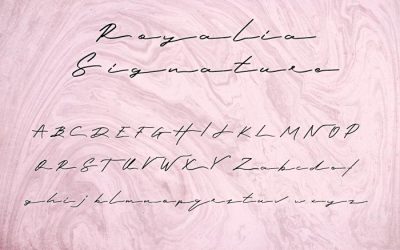 Royalia
Signature
A B C D E F G H I J K L M N O P
Q R S T U V W X Y Z a b c d e f
g h i j k l m n o p q r s t u v w x y z